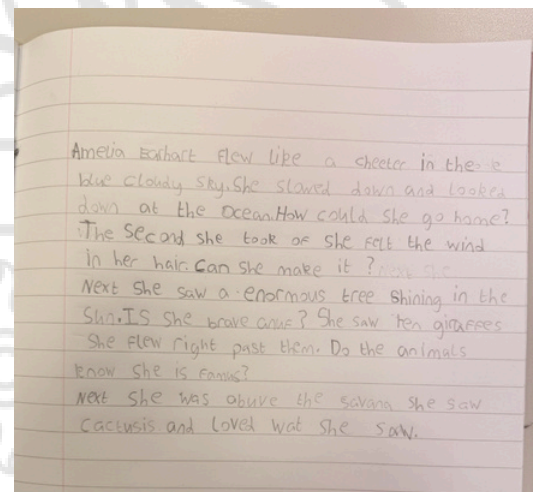 Amelia Earhart flew like a cheeter in the
blue cloudy sky. She slowed down and looked
down at the ocean. How could she go home?
The second she took of she felt the wind
in her hair. Can she make it?
Next she saw a enormous tree shining in the
Sun. IS she brave anuf? She saw ten giraffes
She flew right past them. Do the animals
know she is famus?
Next she was abuve the savana she saw
cactusis and loved wat she saw.